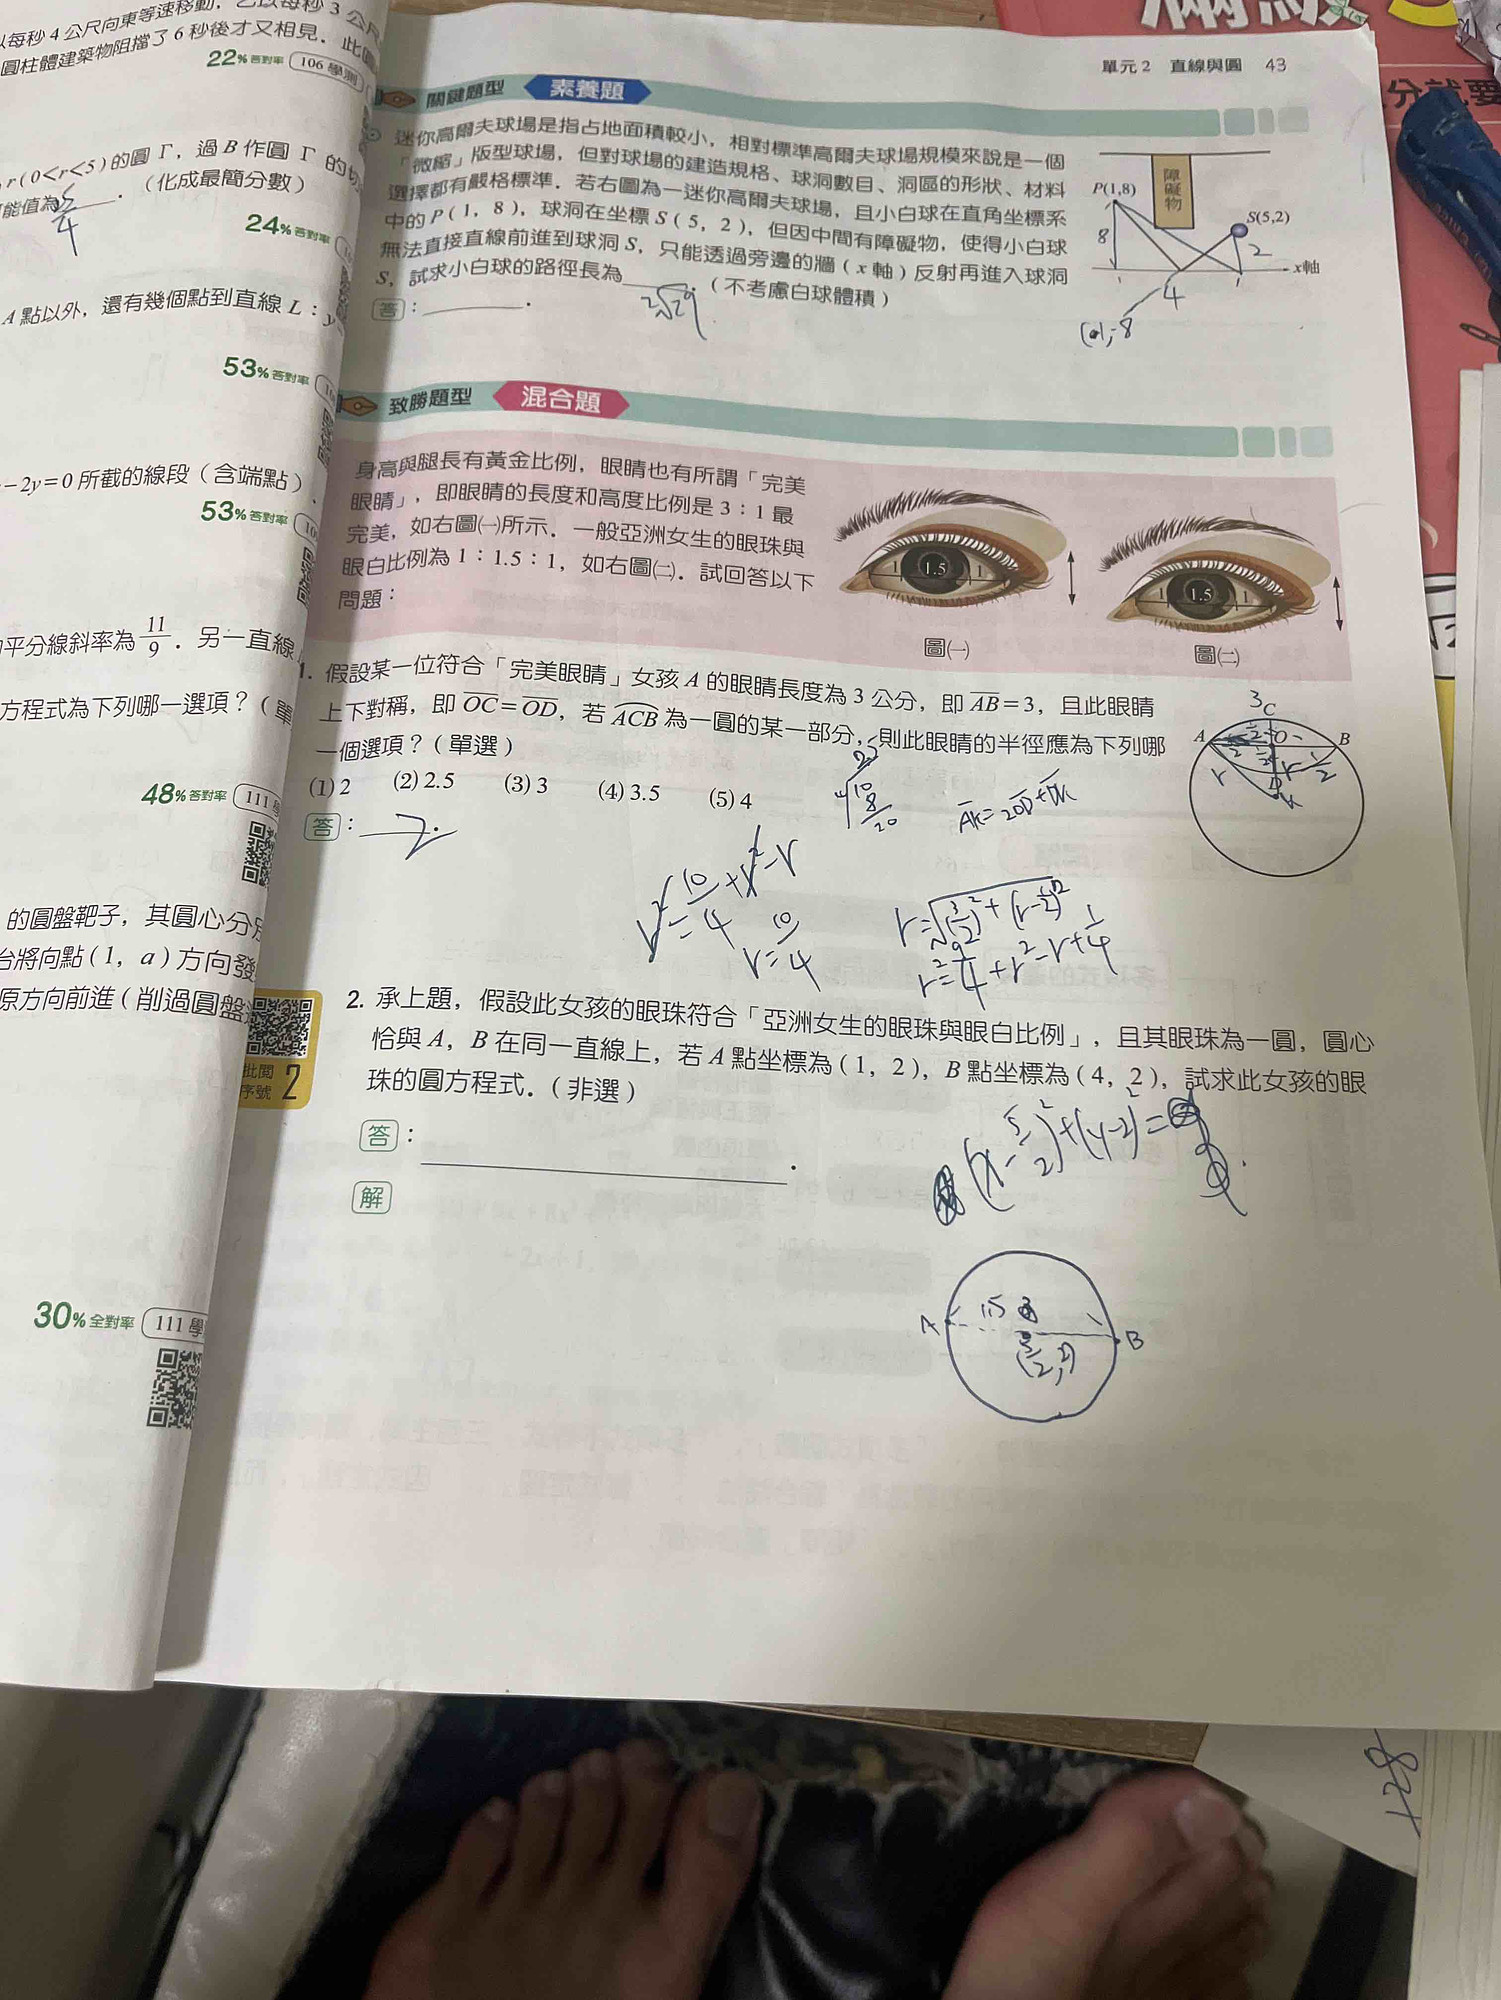 以每秒 4 公尺向東等速移動,乙以每秒 3 公尺
圓柱體建築物阻擋了 6 秒後才又相見.此
22% 答對率 106 學測
r(0<r<5)的圓 Γ,過 B 作圓 Γ 的切
能值為 .(化成最簡分數)
24% 答對率
A 點以外,還有幾個點到直線 L:y
53% 答對率
-2y=0 所截的線段(含端點).
53% 答對率
平分線斜率為 11/9 . 另一直線
方程式為下列哪一選項?(單
48% 答對率 111 學
的圓盤靶子,其圓心分別
台將向點(1, a)方向發
原方向前進(削過圓盤
30% 全對率 111 學
單元 2 直線與圓 43
關鍵題型 素養題
迷你高爾夫球場是指占地面積較小,相對標準高爾夫球場規模來說是一個
「微縮」版型球場,但對球場的建造規格、球洞數目、洞區的形狀、材料
選擇都有嚴格標準.若右圖為一迷你高爾夫球場,且小白球在直角坐標系
中的 P(1, 8),球洞在坐標 S(5, 2),但因中間有障礙物,使得小白球
無法直接直線前進到球洞 S,只能透過旁邊的牆(x 軸)反射再進入球洞
S,試求小白球的路徑長為 .(不考慮白球體積)
2√29
答:
障礙物
P(1,8)
S(5,2)
8
2
x軸
4
致勝題型 混合題
身高與腿長有黃金比例,眼睛也有所謂「完美
眼睛」,即眼睛的長度和高度比例是 3:1 最
完美,如右圖㈠所示.一般亞洲女生的眼珠與
眼白比例為 1:1.5:1,如右圖㈡.試回答以下
問題:
1 1.5 1
圖㈠
1 1.5 1
圖㈡
1. 假設某一位符合「完美眼睛」女孩 A 的眼睛長度為 3 公分,即 AB=3,且此眼睛
上下對稱,即 OC=OD,若 ACB 為一圓的某一部分,則此眼睛的半徑應為下列哪
一個選項?(單選)
(1) 2 (2) 2.5 (3) 3 (4) 3.5 (5) 4
答:
3
C
A
O
B
D
r
r-1/2
r=√(3/2)²+(r-1/2)²
r²=9/4+r²-r+1/4
r²=10/4+r²-r
r=10/4
批閱序號 2
2. 承上題,假設此女孩的眼珠符合「亞洲女生的眼珠與眼白比例」,且其眼珠為一圓,圓心
恰與 A,B 在同一直線上,若 A 點坐標為(1, 2),B 點坐標為(4, 2),試求此女孩的眼
珠的圓方程式.(非選)
答:
(x-5/2)²+(y-2)²=
解
A
1.5
B
(5/2,2)